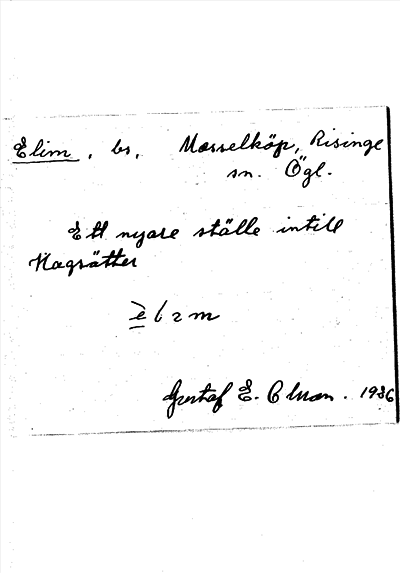 Elim, bs, Mosselköp, Risinge
sn. Ögl.
Ett nyare ställe intill
Hagsätter
Gustaf E. Olson. 1936